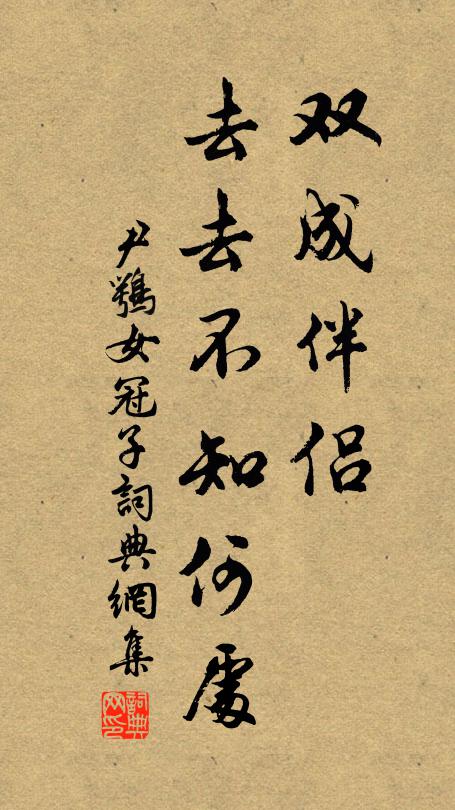 双成伴侣
去去不知何處
尹鶚女冠子詞典網集
詞典网印